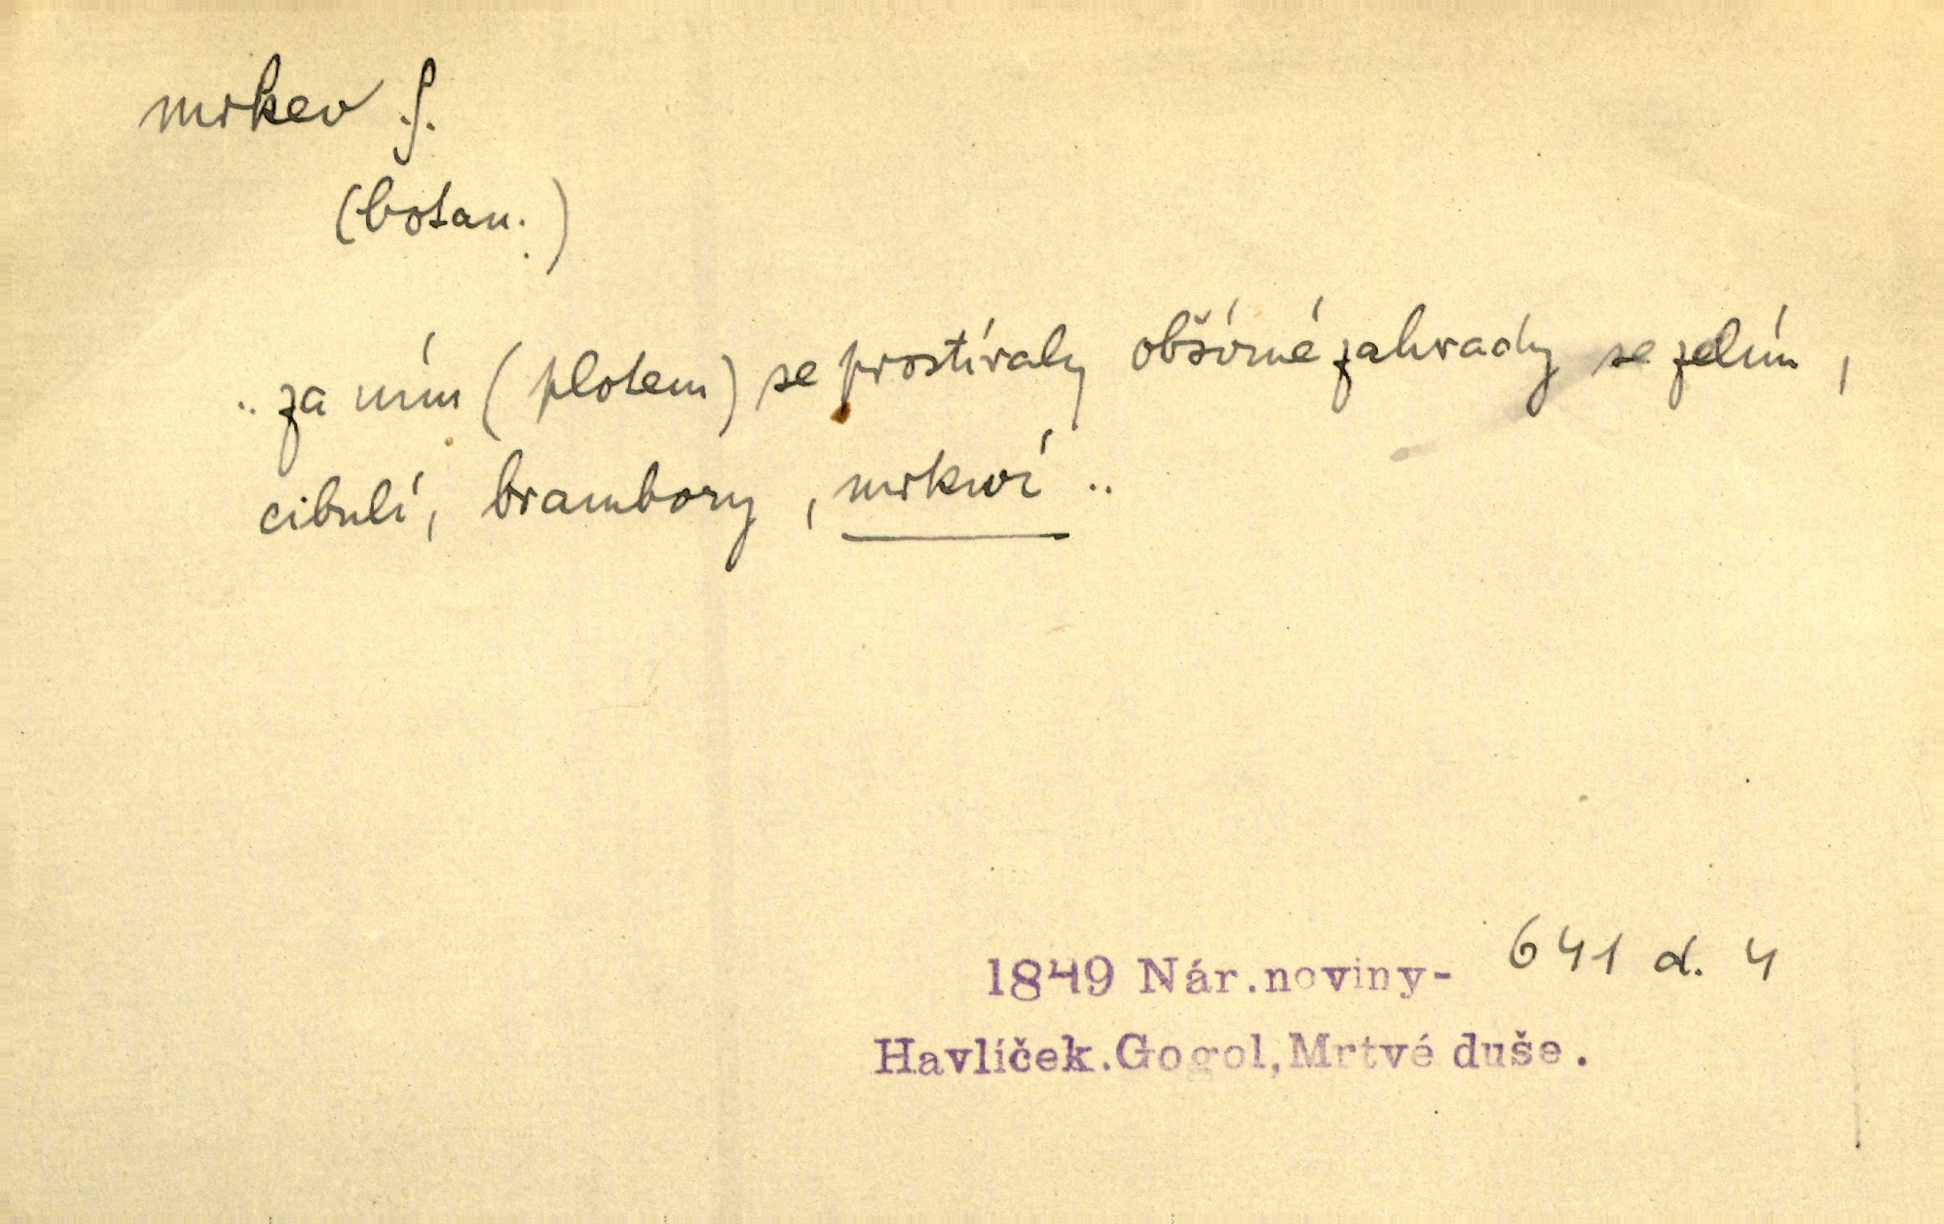 mrkev .f.
(botan.)
.. za ním (plotem) se prostíraly obšírné zahrady se zelím,
cibulí, brambory, mrkví ..
1849 Nár.noviny- 641 d. 4
Havlíček.Gogol,Mrtvé duše.